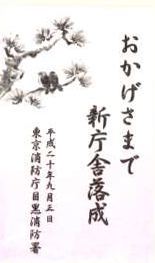 おかげさまで
新庁舎落成
平成二十年九月三日
東京消防庁目黒消防署